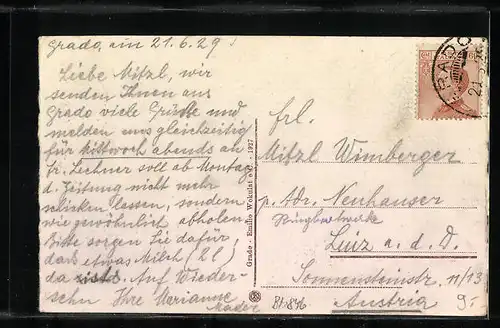 Grado, am 21.6.29.
Liebe Mitzl, wir
senden Ihnen aus
Grado viele Grüße und
melden uns gleichzeitig
für Mittwoch abends an
Fr. Lechner soll ab Montag
d. Zeitung nicht mehr
schicken lassen, sondern
wie gewöhnlich abholen.
Bitte sorgen Sie dafür,
dass etwas Milch (2 l)
da ist. Auf Wieder-
sehn Ihre Marianne
Grado - Emilio Wokulat ed. - 1927
GRADO
21
60
Frl.
Mitzl Wimberger
p. Adr. Neuhauser
Linz a. d. D.
Sonnensteinstr. 11/13
Austria
9.-